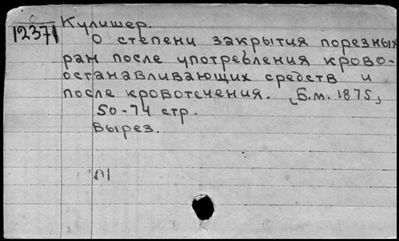 Кулишер.
12371
О степени закрытия порезных
ран после употребления крово-
останавливающих средств и
после кровотечения. [Б.м. 1875]
50-74 стр.
Вырез.